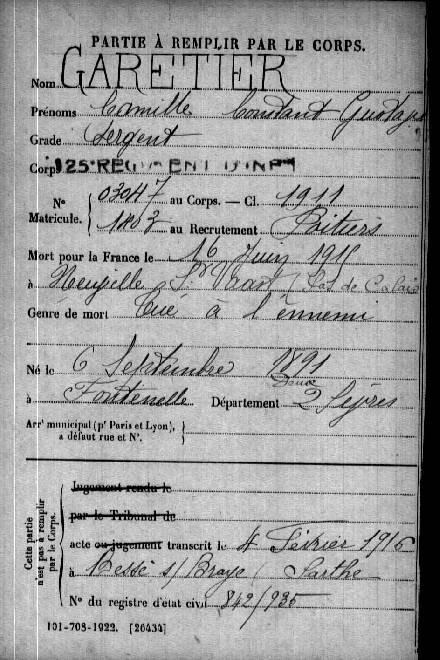 PARTIE À REMPLIR PAR LE CORPS.
Nom GARETIER
Prénoms Camille Constant Gustave
Grade Sergent
Corps 125e REGIMENT D'INFIE
N° 03047 au Corps. — Cl. 1911
Matricule. 1803 au Recrutement Poitiers
Mort pour la France le 16 Juin 1915
à Neuville St Vaast (Pas de Calais
Genre de mort Tué à l'ennemi
Né le 6 Septembre 1891
à Fontenelle Département 2 Sèvres
Deux
Arrt municipal (pr Paris et Lyon),
à défaut rue et N°.
Cette partie
n'est pas à remplir
par le Corps.
Jugement rendu le
par le Tribunal de
acte ou jugement transcrit le 4 Février 1916
à Bessé s/ Braye (Sarthe
N° du registre d'état civil 842/935
101-708-1922. [26434]